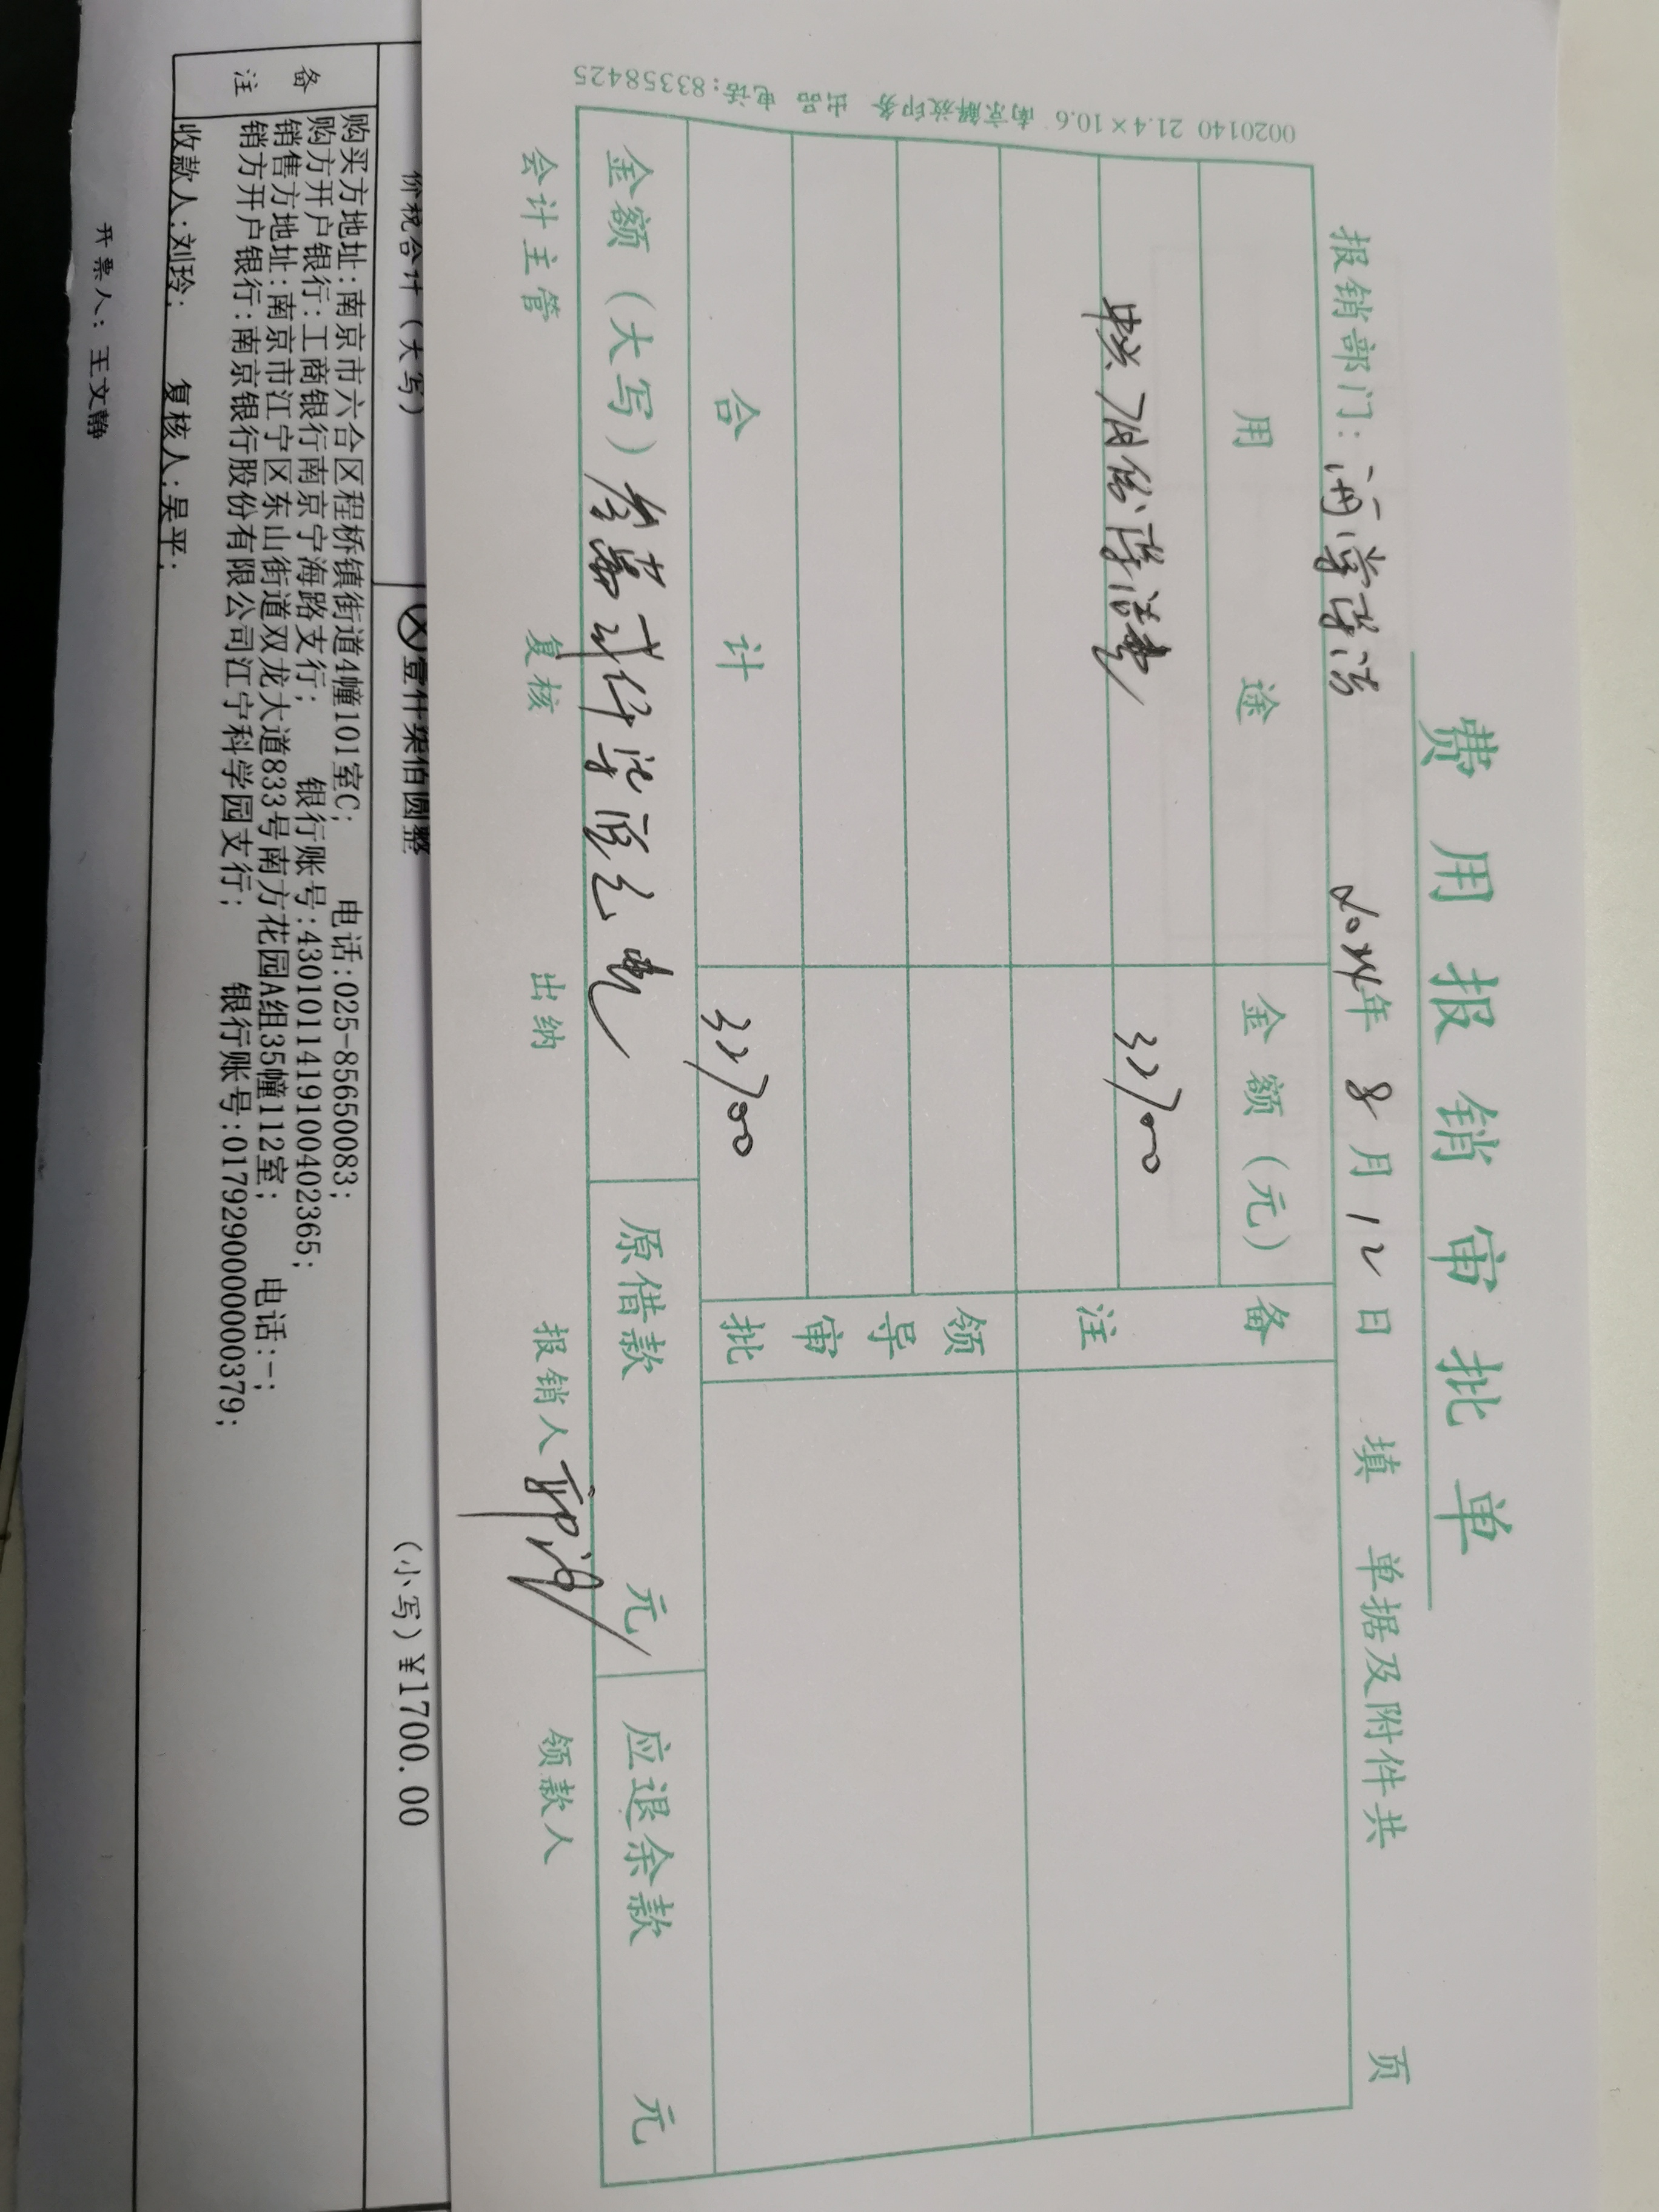 费用报销审批单
报销部门: 2024年8月12日 填 单据及附件共 页
用途 金额(元) 备注
7月份保洁费 32700
领导审批
合计 32700
金额(大写)叁万贰仟柒佰元整 原借款 元 应退余款 元
会计主管 复核 出纳 报销人 领款人
0020140 21.4×10.6 南京解放印务 出品 电话:83358425
价税合计(大写) ⊗壹仟柒佰圆整 (小写)¥1700.00
备注
购买方地址:南京市六合区程桥镇街道4幢101室C; 电话:025-85650083;
购方开户银行:工商银行南京宁海路支行; 银行账号:4301011419100402365;
销售方地址:南京市江宁区东山街道双龙大道833号南方花园A组35幢112室; 电话:-;
销方开户银行:南京银行股份有限公司江宁科学园支行; 银行账号:0179290000000379;
收款人:刘玲; 复核人:吴平;
开票人:王文静